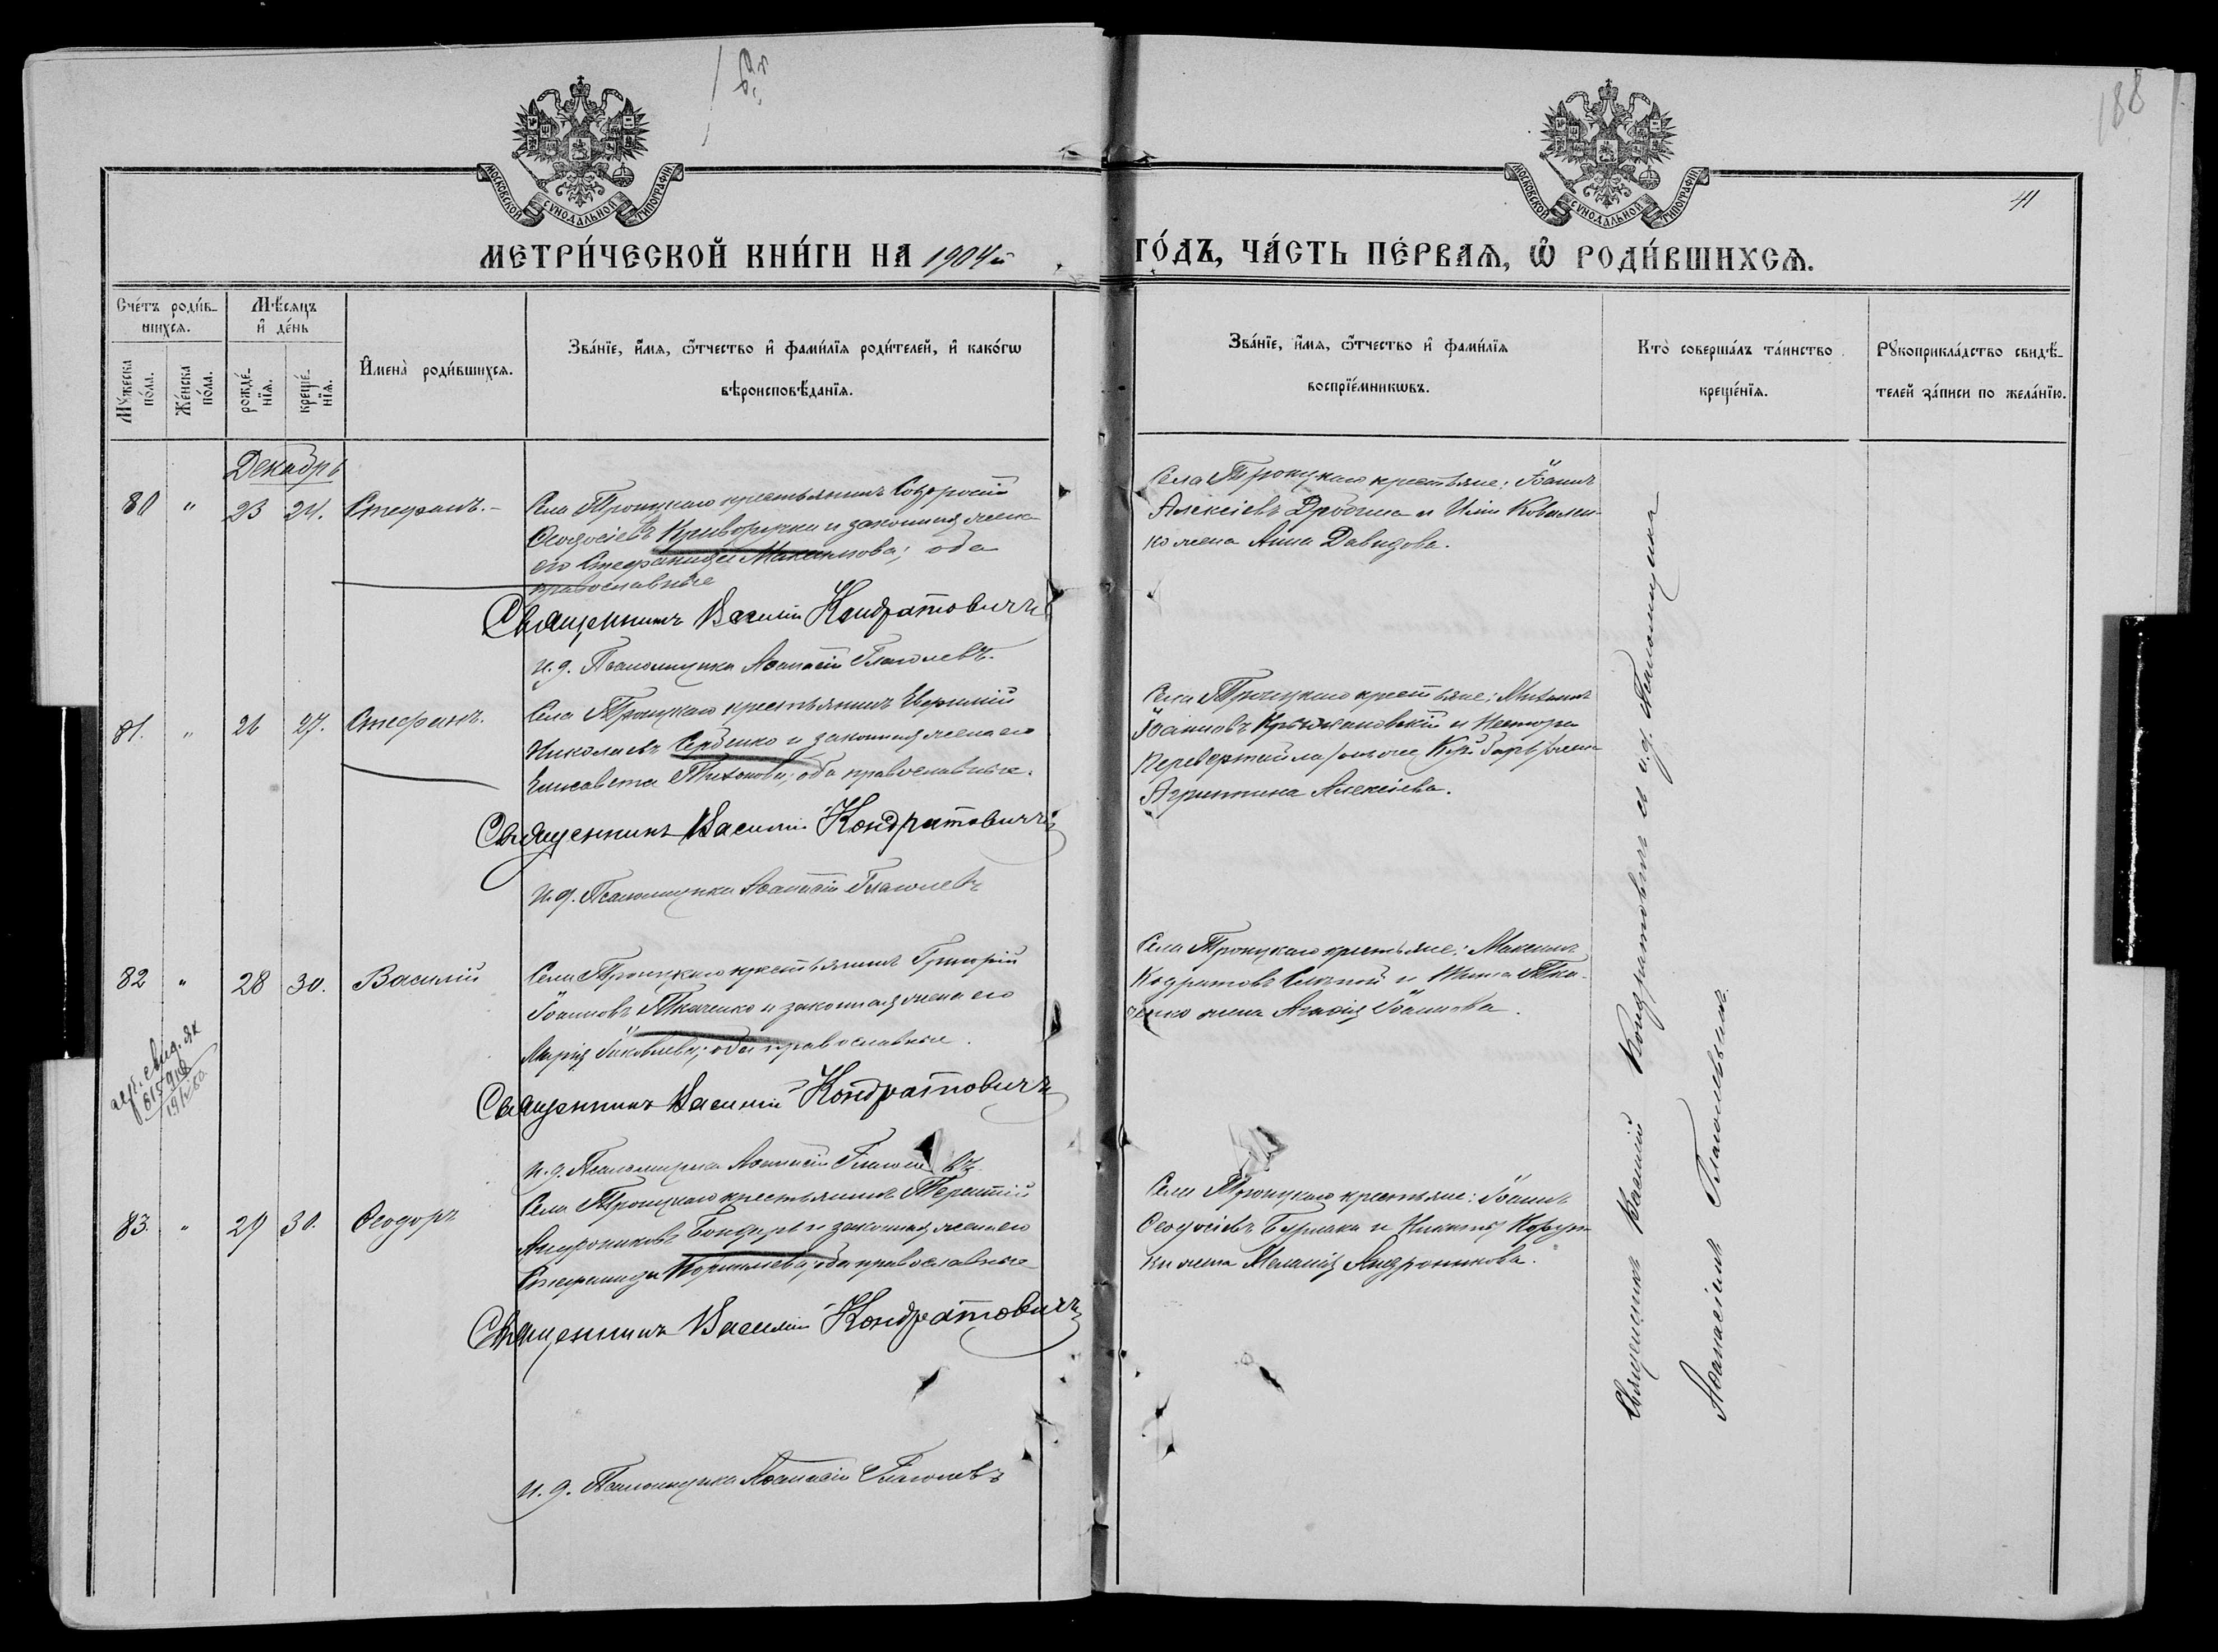 188
41
МОСКОВСКОЙ СѴНОДАЛЬНОЙ ТИПОГРАФІИ
МОСКОВСКОЙ СѴНОДАЛЬНОЙ ТИПОГРАФІИ
МЕТРИ́ЧЕСКОЙ КНИ́ГИ НА 1904й
ГО́ДЪ, ЧА́СТЬ ПЕ́РВАѦ, Ѡ҆ РОДИ́ВШИХСѦ.
Сче́тъ роди́в-
шихсѧ.
Мꙋжеска по́ла.
Же́нска по́ла.
Мѣ́сѧцъ
и҆ де́нь
рожде́-
нїѧ.
креще́-
нїѧ.
И҆мена̀ роди́вшихсѧ.
Зва́нїе, и҆́мѧ, ѻ҆́тчество и҆ фами́лїѧ роди́телей, и҆ како́гѡ
вѣроисповѣ́данїѧ.
Зва́нїе, и҆́мѧ, ѻ҆́тчество и҆ фами́лїѧ
воспрїе́мникѡвъ.
Кто̀ соверша́лъ та́инство
креще́нїѧ.
Рꙋкоприкла́дство свидѣ́-
телей за́писи по жела́нїю.
Декабрь
80 " 23 24. Стефанъ.-
Села Троицкаго крестьянинъ
Ѳеодосіевъ Криворучка и законная жена
его Стефанида Максимова; оба
православные
Священникъ Василій Кондратовичъ
и. д. Псаломщика Аѳанасій Глаголевъ.
Села Троицкаго крестьяне: Іоаннъ
Алексіевъ Дробина и Ковален-
ко жена Анна Давидова.
81. " 26 27. Стефанъ.
Села Троицкаго крестьянинъ Евфимій
Николаевъ Сербенко и законная жена его
Елисавета Тихонова; оба православные.
Священникъ Василій Кондратовичъ
и. д. Псаломщика Аѳанасій Глаголевъ
Села Троицкаго крестьяне: Михаилъ
Іоанновъ Крыжановскій и Нестора
Перевертайла жена
Агриппина Алексіева.
82 " 28 30. Василій
Села Троицкаго крестьянинъ Григорій
Іоанновъ Ткаченко и законная жена его
Марія Іаковлева; оба православные.
Священникъ Василій Кондратовичъ
и. д. Псаломщика Аѳанасій Глаголевъ
Села Троицкаго крестьяне: Максимъ
Кодратовъ Слѣпой и Тита Тка-
ченко жена Агафія Іоаннова.
83. " 29 30. Ѳеодоръ
Села Троицкаго крестьянинъ Терентій
Андрониковъ Бондарь и законная жена его
Стефанида Корнилиева; оба православные
Священникъ Василій Кондратовичъ
и. д. Псаломщика Аѳанасій Глаголевъ
Села Троицкаго крестьяне: Іоаннъ
Ѳеодосіевъ Бурлака и Никиты
жена Меланія Андроникова.
Священникъ Василій Кондратовичъ съ и.д. Псаломщика
Аѳанасіемъ Глаголевымъ.